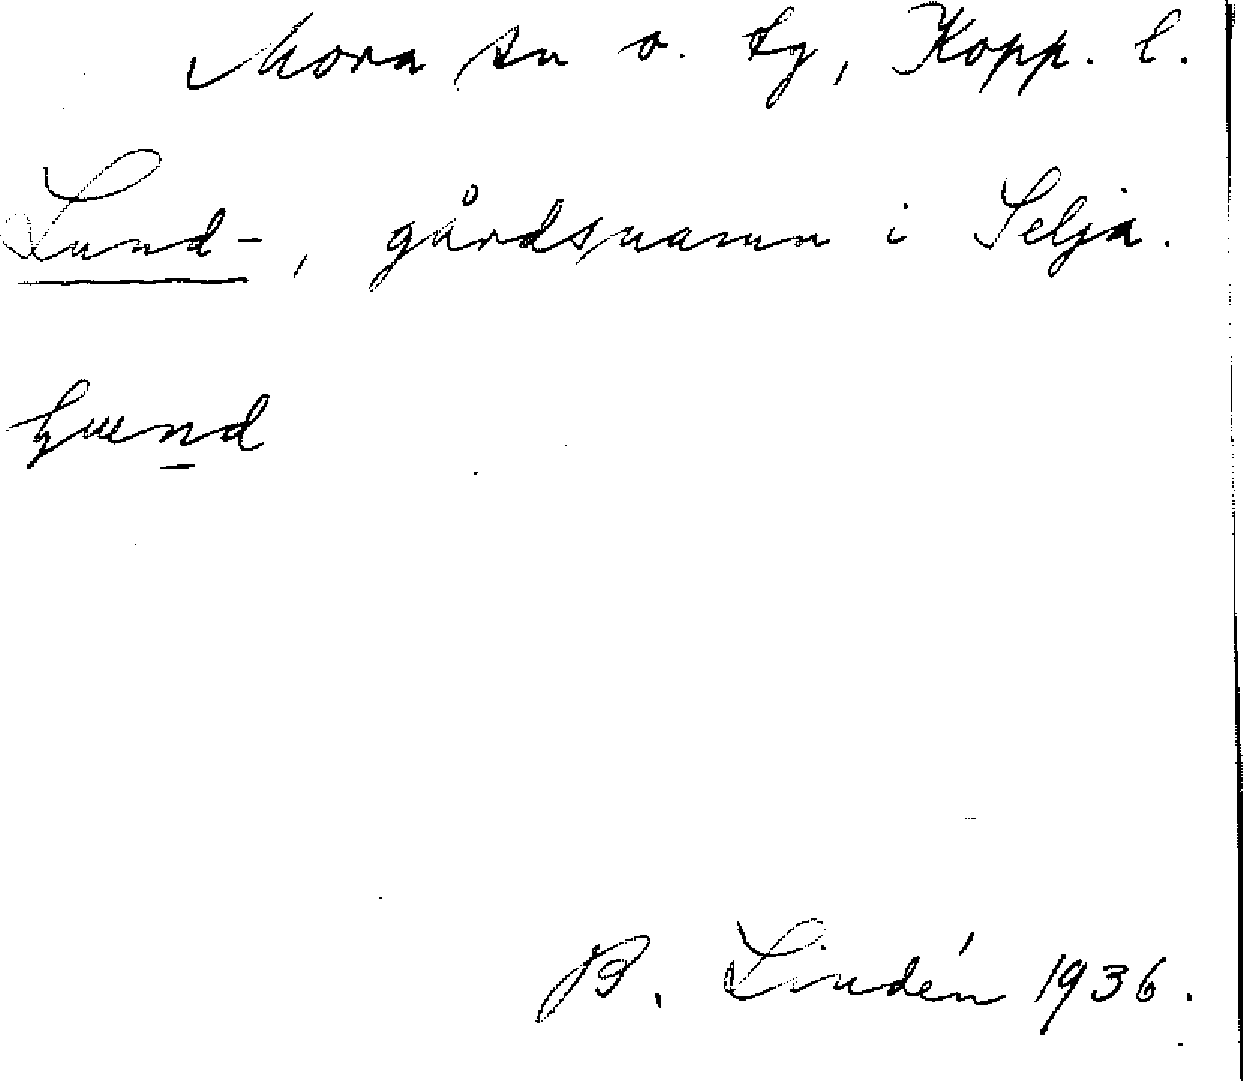 Mora sn o. tg, Kopp. l.
Lund-, gårdsnamn i Selja.
B. Lindén 1936.